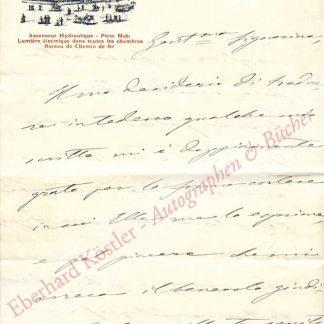 Ascenseur Hydraulique - Plein Midi
Lumière électrique dans toutes les chambres
Bureau de Chemin de fer
Gent.ma Signorina,
Il suo desiderio di tradur
re in tedesco qualche mio
scritto mi è doppiamente
grato per la forma cortese
in cui Ella me lo esprime,
e pel piacere che mi
arreca il benevolo giudi
Eberhard Köstler - Autographen & Bücher